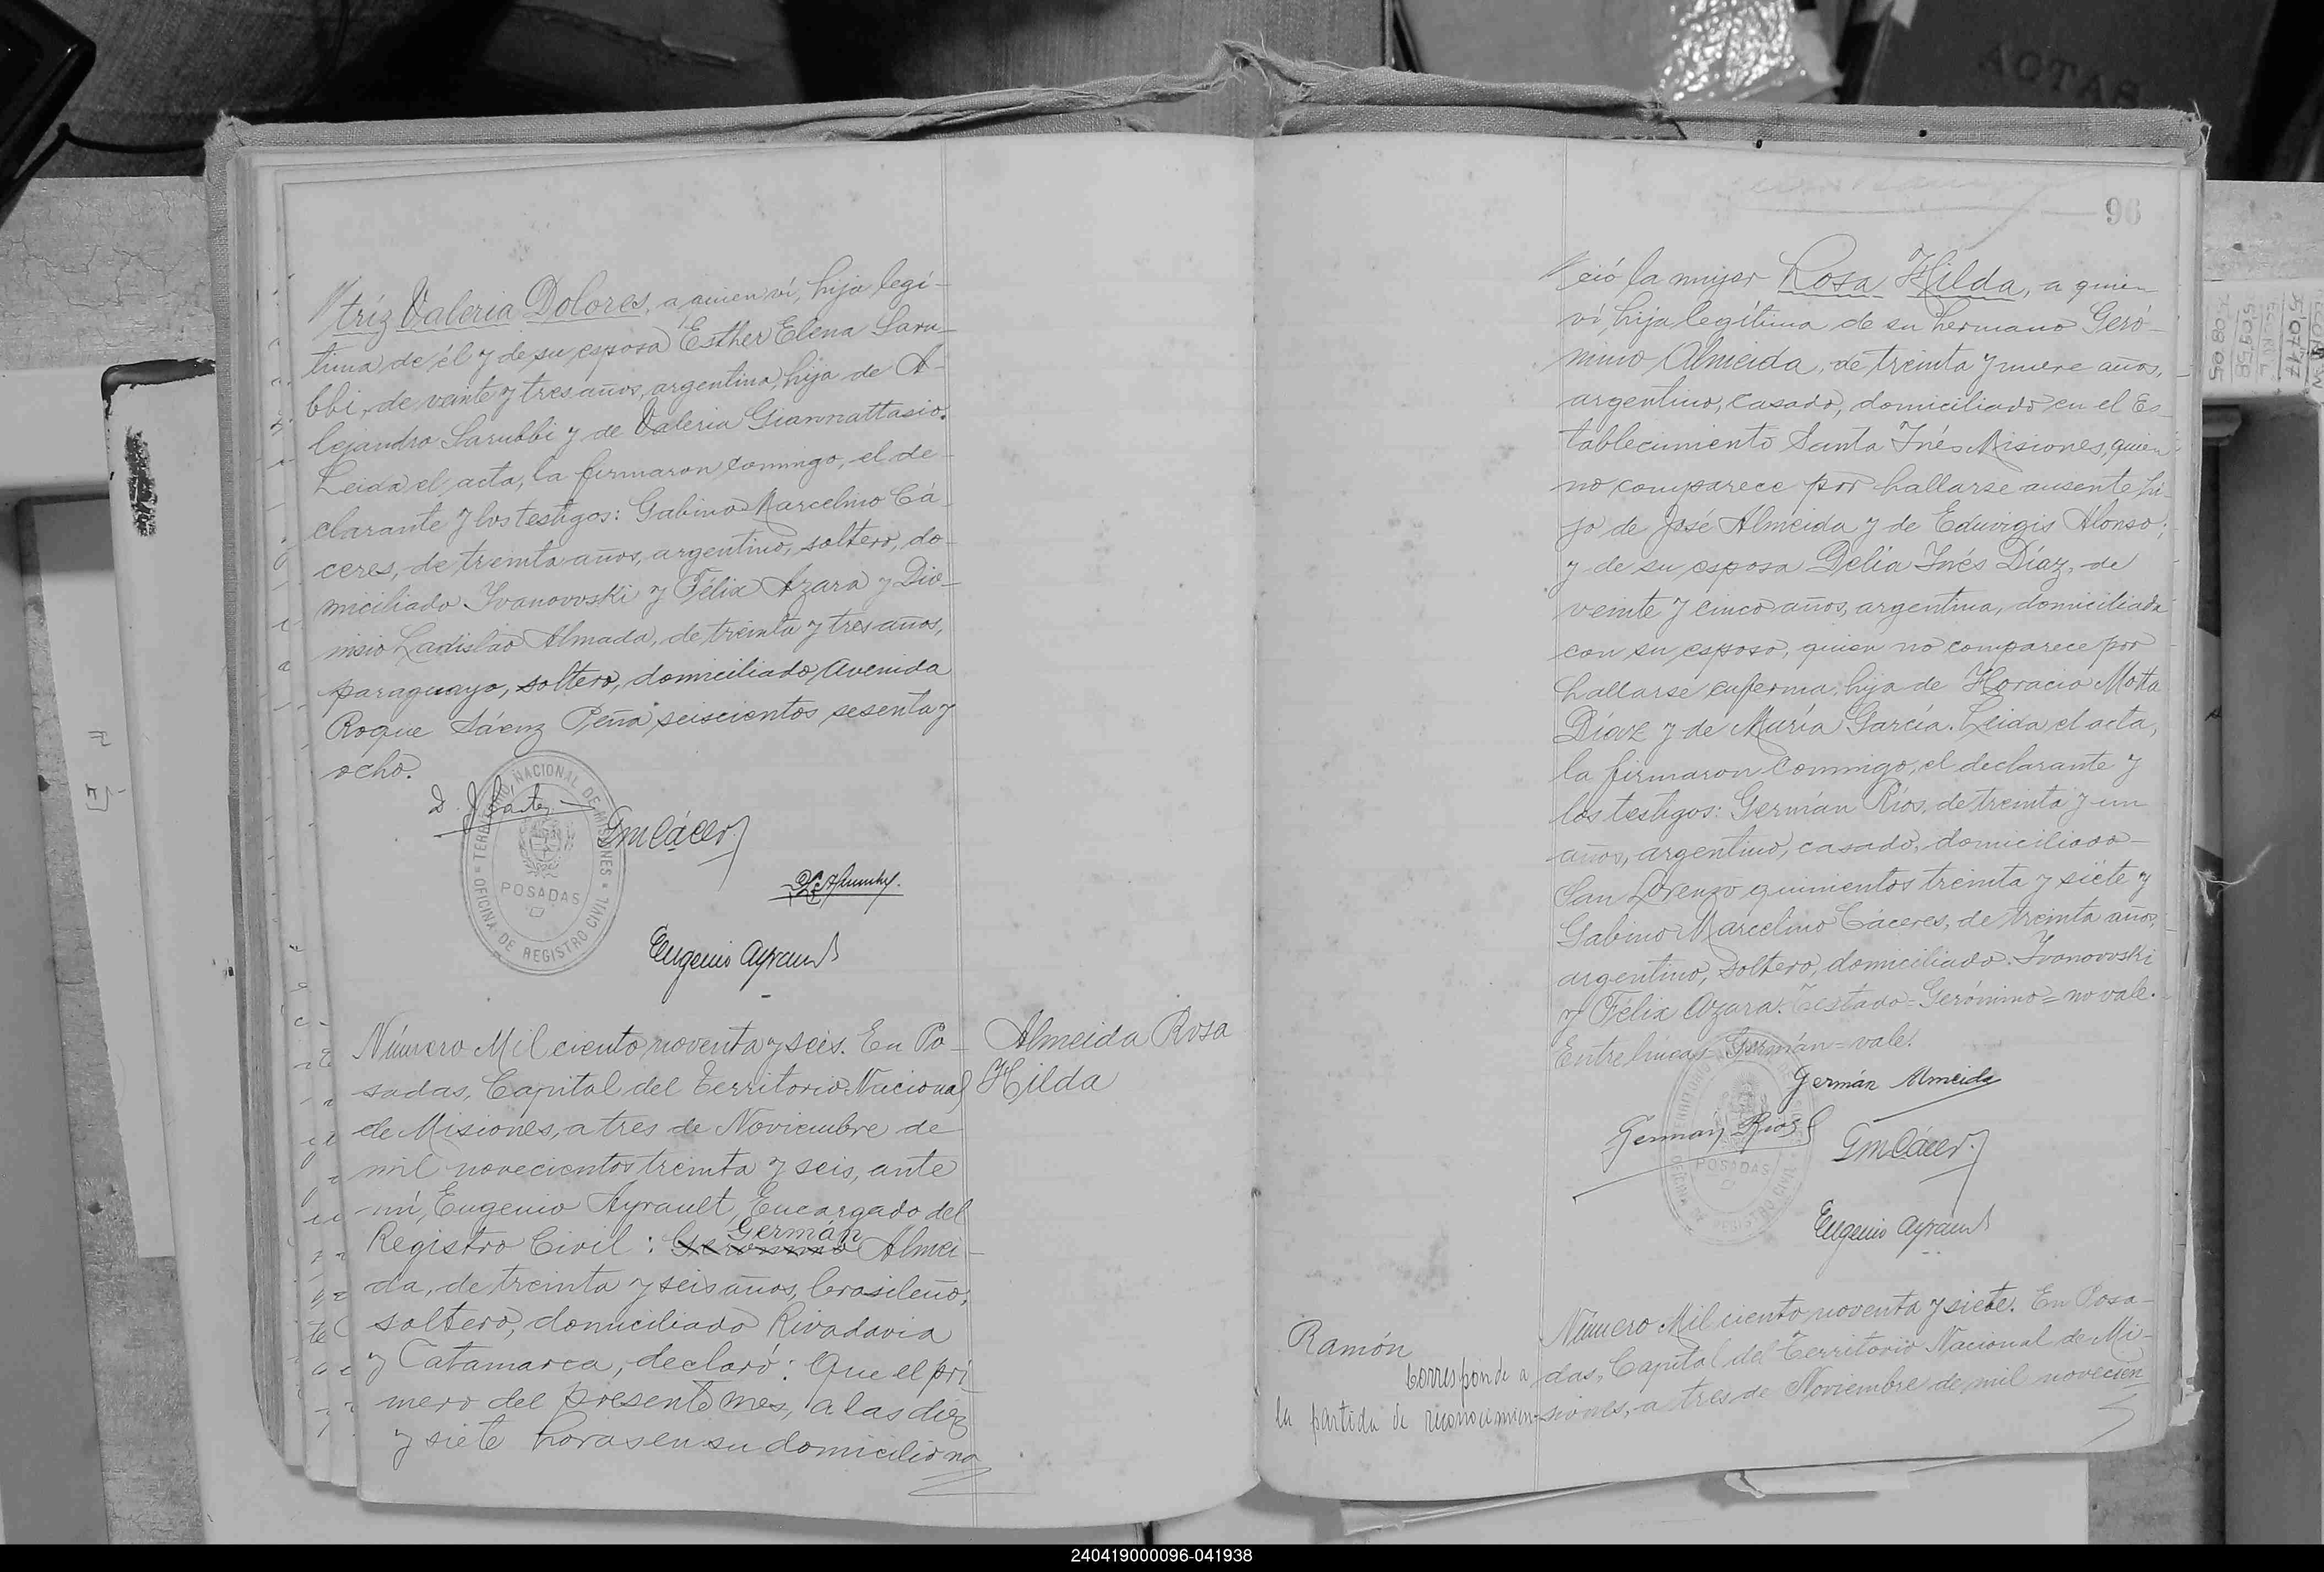 triz Valeria Dolores, a quien ví, hija legí-
tima de él y de su esposa Esther Elena Saru-
bbi, de veinte y tres años, argentina, hija de A-
lejandro Sarubbi y de Valeria Giannattasio.
Leida el acta, la firmaron conmigo, el de-
clarante y los testigos: Gabino Marcelino Cá-
ceres, de treinta años, argentino, soltero, do-
miciliado Ivanovvski y Félix Azara y Dio-
nisio Ladislao Almada, de treinta y tres años,
paraguayo, soltero, domiciliado Avenida
Roque Sáenz Peña seiscientos sesenta y
ocho.
TERRITORIO NACIONAL DE MISIONES
POSADAS
OFICINA DE REGISTRO CIVIL
GmCácer
Eugenio Ayrault
Número Mil ciento noventa y seis. En Po-
sadas, Capital del Territorio Nacional
de Misiones, a tres de Noviembre de
mil novecientos treinta y seis, ante
mí, Eugenio Ayrault, Encargado del
Germán
Registro Civil: Gerónimo Almei-
da, de treinta y seis años, brasileño,
soltero, domiciliado Rivadavia
y Catamarca, declaró: Que el pri-
mero del presente mes, a las diez
y siete horas en su domicilio na
Almeida Rosa
Hilda
96
ció la mujer Rosa Hilda, a quien
ví, hija legítima de su hermano Geró-
nimo Almeida, de treinta y nueve años,
argentino, casado, domiciliado en el Es-
tablecimiento Santa Inés Misiones, quien
no comparece por hallarse ausente hi-
jo de José Almeida y de Eduvigis Alonso;
y de su esposa Delia Inés Díaz, de
veinte y cinco años, argentina, domiciliada
con su esposo, quien no comparece por
hallarse enferma, hija de Horacio Motta
Díaz y de María García. Leida el acta,
la firmaron conmigo, el declarante y
los testigos: Germán Ríos, de treinta y un
años, argentino, casado, domiciliado
San Lorenzo quinientos treinta y siete y
Gabino Marcelino Cáceres, de treinta años,
argentino, soltero, domiciliado Ivanovvski
y Félix Azara. Testado=Gerónimo=no vale.
Entre líneas=Germán=vale.
Germán Almeida
German Rios
GmCácer
POSADAS
Eugenio Ayrault
Número Mil ciento noventa y siete. En Posa-
das, Capital del Territorio Nacional de Mi-
siones, a tres de Noviembre de mil novecien
Ramón
Corresponde a
la partida de reconocimien-
ACTAS
240419000096-041938